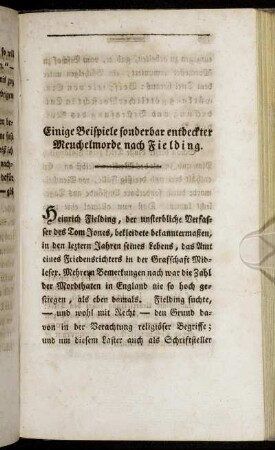 Einige Beispiele sonderbar entdeckter
Meuchelmorde nach Fielding.
Heinrich Fielding, der unsterbliche Verfas-
ser des Tom Jones, bekleidete bekanntermaßen,
in den leztern Jahren seines Lebens, das Amt
eines Friedensrichters in der Graffschaft Mid-
lesex. Mehrern Bemerkungen nach war die Zahl
der Mordthaten in England nie so hoch ge-
stiegen, als eben damals. Fielding suchte,
— und wohl mit Recht — den Grund da-
von in der Verachtung religiöser Begriffe;
und um diesem Laster auch als Schriftsteller